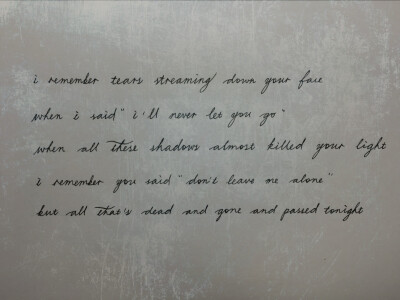 i remember tears streaming down your face
when i said "i'll never let you go"
when all these shadows almost killed your light
i remember you said "don't leave me alone"
but all that's dead and gone and passed tonight